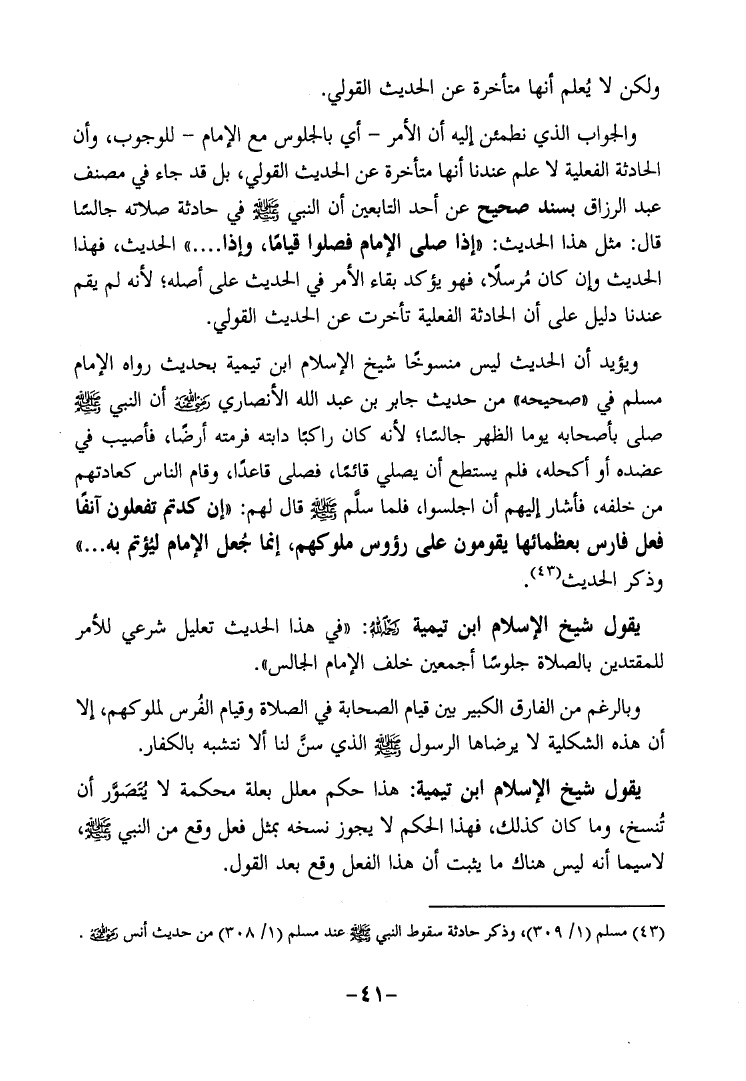 ولكن لا يُعلم أنها متأخرة عن الحديث القولي.
والجواب الذي نطمئن إليه أن الأمر – أي بالجلوس مع الإمام – للوجوب، وأن
الحادثة الفعلية لا علم عندنا أنها متأخرة عن الحديث القولي، بل قد جاء في مصنف
عبد الرزاق بسند صحيح عن أحد التابعين أن النبي ﷺ في حادثة صلاته جالسًا
قال: مثل هذا الحديث: «إذا صلى الإمام فصلوا قيامًا، وإذا....» الحديث، فهذا
الحديث وإن كان مُرسلًا، فهو يؤكد بقاء الأمر في الحديث على أصله؛ لأنه لم يقم
عندنا دليل على أن الحادثة الفعلية تأخرت عن الحديث القولي.
ويؤيد أن الحديث ليس منسوخًا شيخ الإسلام ابن تيمية بحديث رواه الإمام
مسلم في «صحيحه» من حديث جابر بن عبد الله الأنصاري رضي الله عنه أن النبي ﷺ
صلى بأصحابه يوما الظهر جالسًا؛ لأنه كان راكبًا دابته فرمته أرضًا، فأصيب في
عضده أو أكحله، فلم يستطع أن يصلي قائمًا، فصلى قاعدًا، وقام الناس كعادتهم
من خلفه، فأشار إليهم أن اجلسوا، فلما سلَّم ﷺ قال لهم: «إن كدتم تفعلون آنفًا
فعل فارس بعظمائها يقومون على رؤوس ملوكهم، إنما جُعل الإمام ليُؤتم به...»
وذكر الحديث(٤٣).
يقول شيخ الإسلام ابن تيمية رحمه الله: «في هذا الحديث تعليل شرعي للأمر
للمقتدين بالصلاة جلوسًا أجمعين خلف الإمام الجالس».
وبالرغم من الفارق الكبير بين قيام الصحابة في الصلاة وقيام الفُرس لملوكهم، إلا
أن هذه الشكلية لا يرضاها الرسول ﷺ الذي سنَّ لنا ألا نتشبه بالكفار.
يقول شيخ الإسلام ابن تيمية: هذا حكم معلل بعلة محكمة لا يُتَصَوَّر أن
تُنسخ، وما كان كذلك، فهذا الحكم لا يجوز نسخه بمثل فعل وقع من النبي ﷺ،
لاسيما أنه ليس هناك ما يثبت أن هذا الفعل وقع بعد القول.
(٤٣) مسلم (١/ ٣٠٩)، وذكر حادثة سقوط النبي ﷺ عند مسلم (١/ ٣٠٨) من حديث أنس رضي الله عنه .
-٤١-